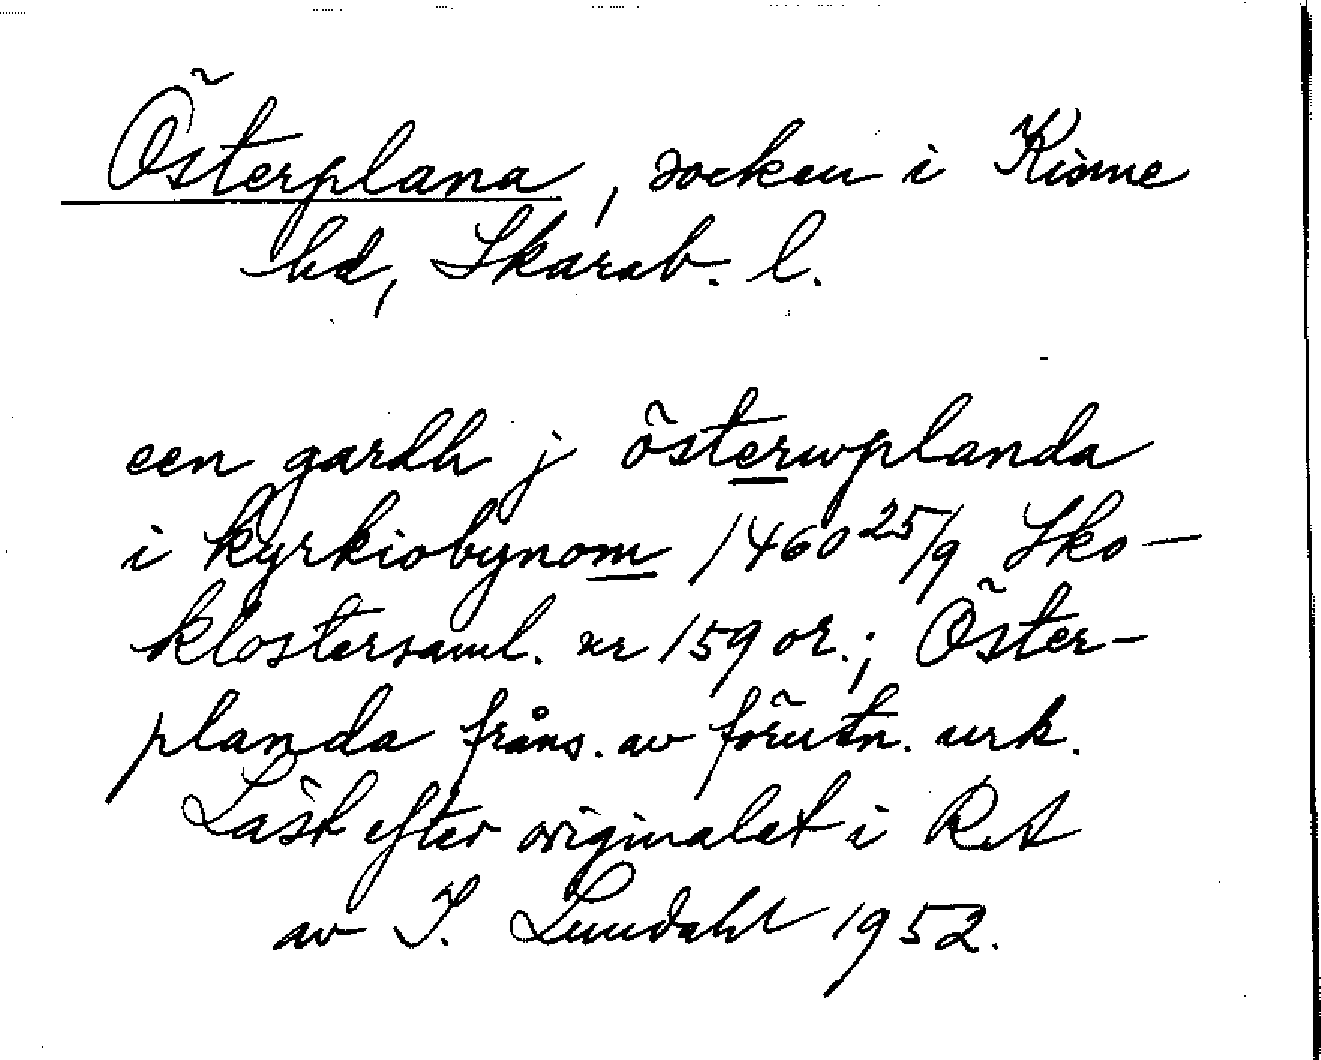 Österplana, socken i Kinne
hd, Skarab. l.
een gardh j österwplanda
i kyrkiobynom 1460 25/9 Sko-
klostersaml. nr 159 or.; Öster-
planda fråns. av förutn. urk.
Läst efter originalet i RA
av I. Lundahl 1952.